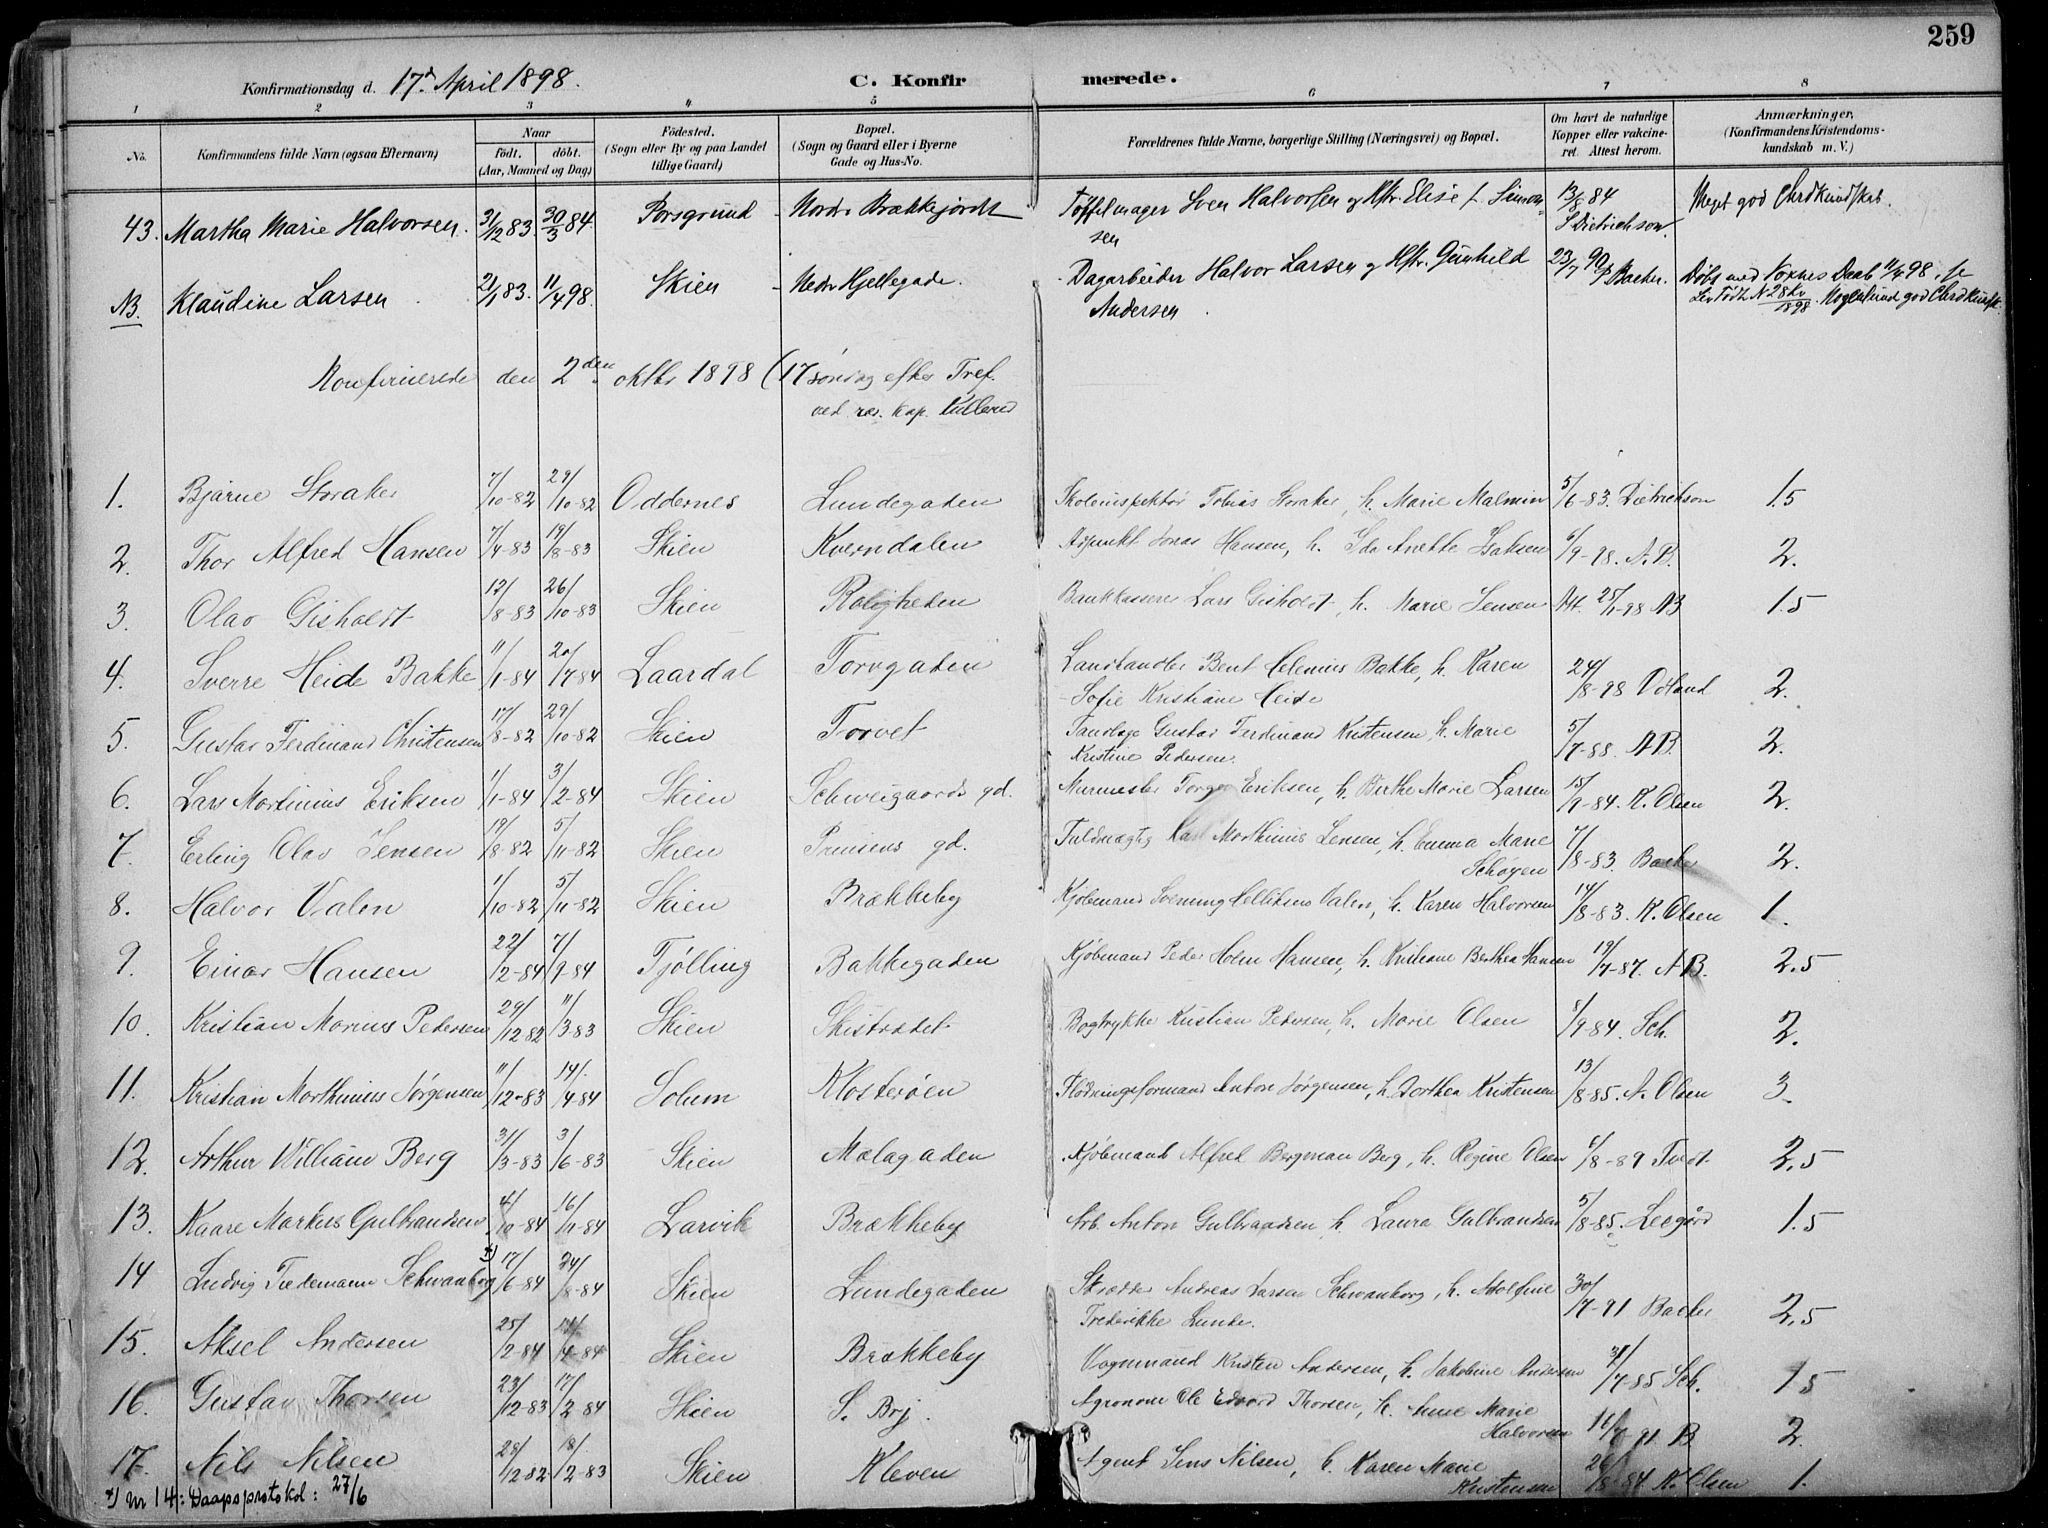 259
Konfirmationsdag d. 17d April 1898. C. Konfirmerede.
1 2 3 4 5 6 7 8
No. Konfirmandens fulde Navn (ogsaa Efternavn) Naar födt. döbt. (Aar, Maaned og Dag) Födested. (Sogn eller By og paa Landet tillige Gaard) Bopæl. (Sogn og Gaard eller i Byerne Gade og Hus-No. Forældrenes fulde Navne, borgerlige Stilling (Næringsvei) og Bopæl. Om havt de naturlige Kopper eller vakcineret. Attest herom. Anmærkninger, (Konfirmandens Kristendomskundskab m. V.)
43. Martha Marie Halvorsen. 31/12 83. 30/3 84. Porsgrund Nedre Brækkejordet Tøffelmager Sven Halvorsen og Hstr. Elise f. Simonsen 13/8 84 S Dietrichson. Meget god Chrdkundskab.
NB. Klaudine Larsen 21/1 83. 11/4 98. Skien Nedre Hjellegade. Dagarbeider Halvor Larsen og Hstr. Gunhild Andersen 23/7 90 Backer. Døbt med Voxnes Daab 11/4 98. se Lev Födte N 28 Kv 1898. god Chrdkundsk.
Konfirmerede den 2den oktbr 1898 (17 søndag efter Tref.
ved res. kap. Kullerud
1. Bjarne Storaker 7/10-82 29/10-82 Oddernes Lundegaden Skoleinspektør Tobias Storaker, h. Marie Malmin 5/6-83. Dietrichson 1.5
2. Thor Alfred Hansen 7/4-83 19/8-83 Skien Kverndalen Aspirant Jonas Hansen, h. Ida Anette Isaksen 6/9-98. A.B. 2.
3. Olav Gisholdt 12/8-83 26/10-83 Skien Roligheden Bankkasserer Lars Gisholdt, h. Marie Jensen Att. 25/1-98 AB 1.5
4. Sverre Heide Bakke 11/1-84 20/7-84 Laardal Torvgaden Landhandler Bent Helenius Bakke, h. Karen Sofie Kristiane Heide 24/8-98 Ödland 2.
5. Gustav Ferdinand Christensen 17/8-82 29/10-82 Skien Torvet Tandlæge Gustav Ferdinand Kristensen, h. Marie Kristine Pedersen. 5/7-88. A.B. 2.
6. Lars Martinius Eriksen 1/1-84 3/2-84 Skien Schweigaards gd. Murmester Torger Eriksen, h. Berthe Marie Larsen 15/9-84. K. Olsen 2.
7. Erling Olav Jensen 19/8-82 5/11-82 Skien Prinsens gd. Fuldmægtig Karl Morthinius Jensen, h. Emma Marie Schøyen 7/8-83. Backer 2.
8. Halvor Valen 1/10-82 5/11-82 Skien Brækkeby Kjøbmand Svenning Helliksens Valen, h. Karen Halvorsen 14/8-83. K. Olsen 1.
9. Einar Hansen 22/2-84 7/9-84 Tjølling Bakkegaden Kjøbmand Peder Holm Hansen, h. Kristiane Berthea Hansen 19/7-87. A.B. 2.5
10. Kristian Marius Pedersen 29/12 82 11/3-83 Skien Skistredet Bogtrykker Kristian Pedersen, h. Marie Olsen 8/9-84. Sch. 2.
11. Kristian Morthinius Jørgensen 11/12-83 14/4-84 Solum Klosterøen Flødningsformand Anton Jørgensen, h. Dorthea Kristensen 13/8-85. A. Olsen 3.
12. Arthur William Berg 31/3-83 3/6-83 Skien Mælagaden Kjøbmand Alfred Bergman Berg, h. Regine Olsen 6/8-89 Tvedt 2,5
13. Kaare Markus Gulbrandsen 4/10-84 16/11-84 Larvik Brækkeby Arb. Anton Gulbrandsen h. Laura Gulbrandsen 5/8-85. Leegård 1.5
14 Ludvig Tiedemann Schwanborg x) 17/6-84 24/8-84 Skien Lundegaden Skrædder Andreas Larsen Schwanborg, h. Adolfine Frederikke Lunde. 30/7-91 Backer 2,5
15. Aksel Andersen 25/2-84 /4-84 Skien Brækkeby Vognmand Kristen Andersen, h. Jakobine Andersen 31/7-85 Sch. 1 5
16. Gustav Thorsen 23/12-83 17/2-84 Skien S. Brj. Agronom Ole Edvard Thorsen, h. Anne Marie Halvorsen 91 B 2.
17. Nils Nilsen 28/12-82 18/2-83 Skien Kleven Agent Jens Nilsen, h. Karen Marie Kristensen 26/8-84 K. Olsen 1.
x) nr 14: Daapsprotokol: 27/6